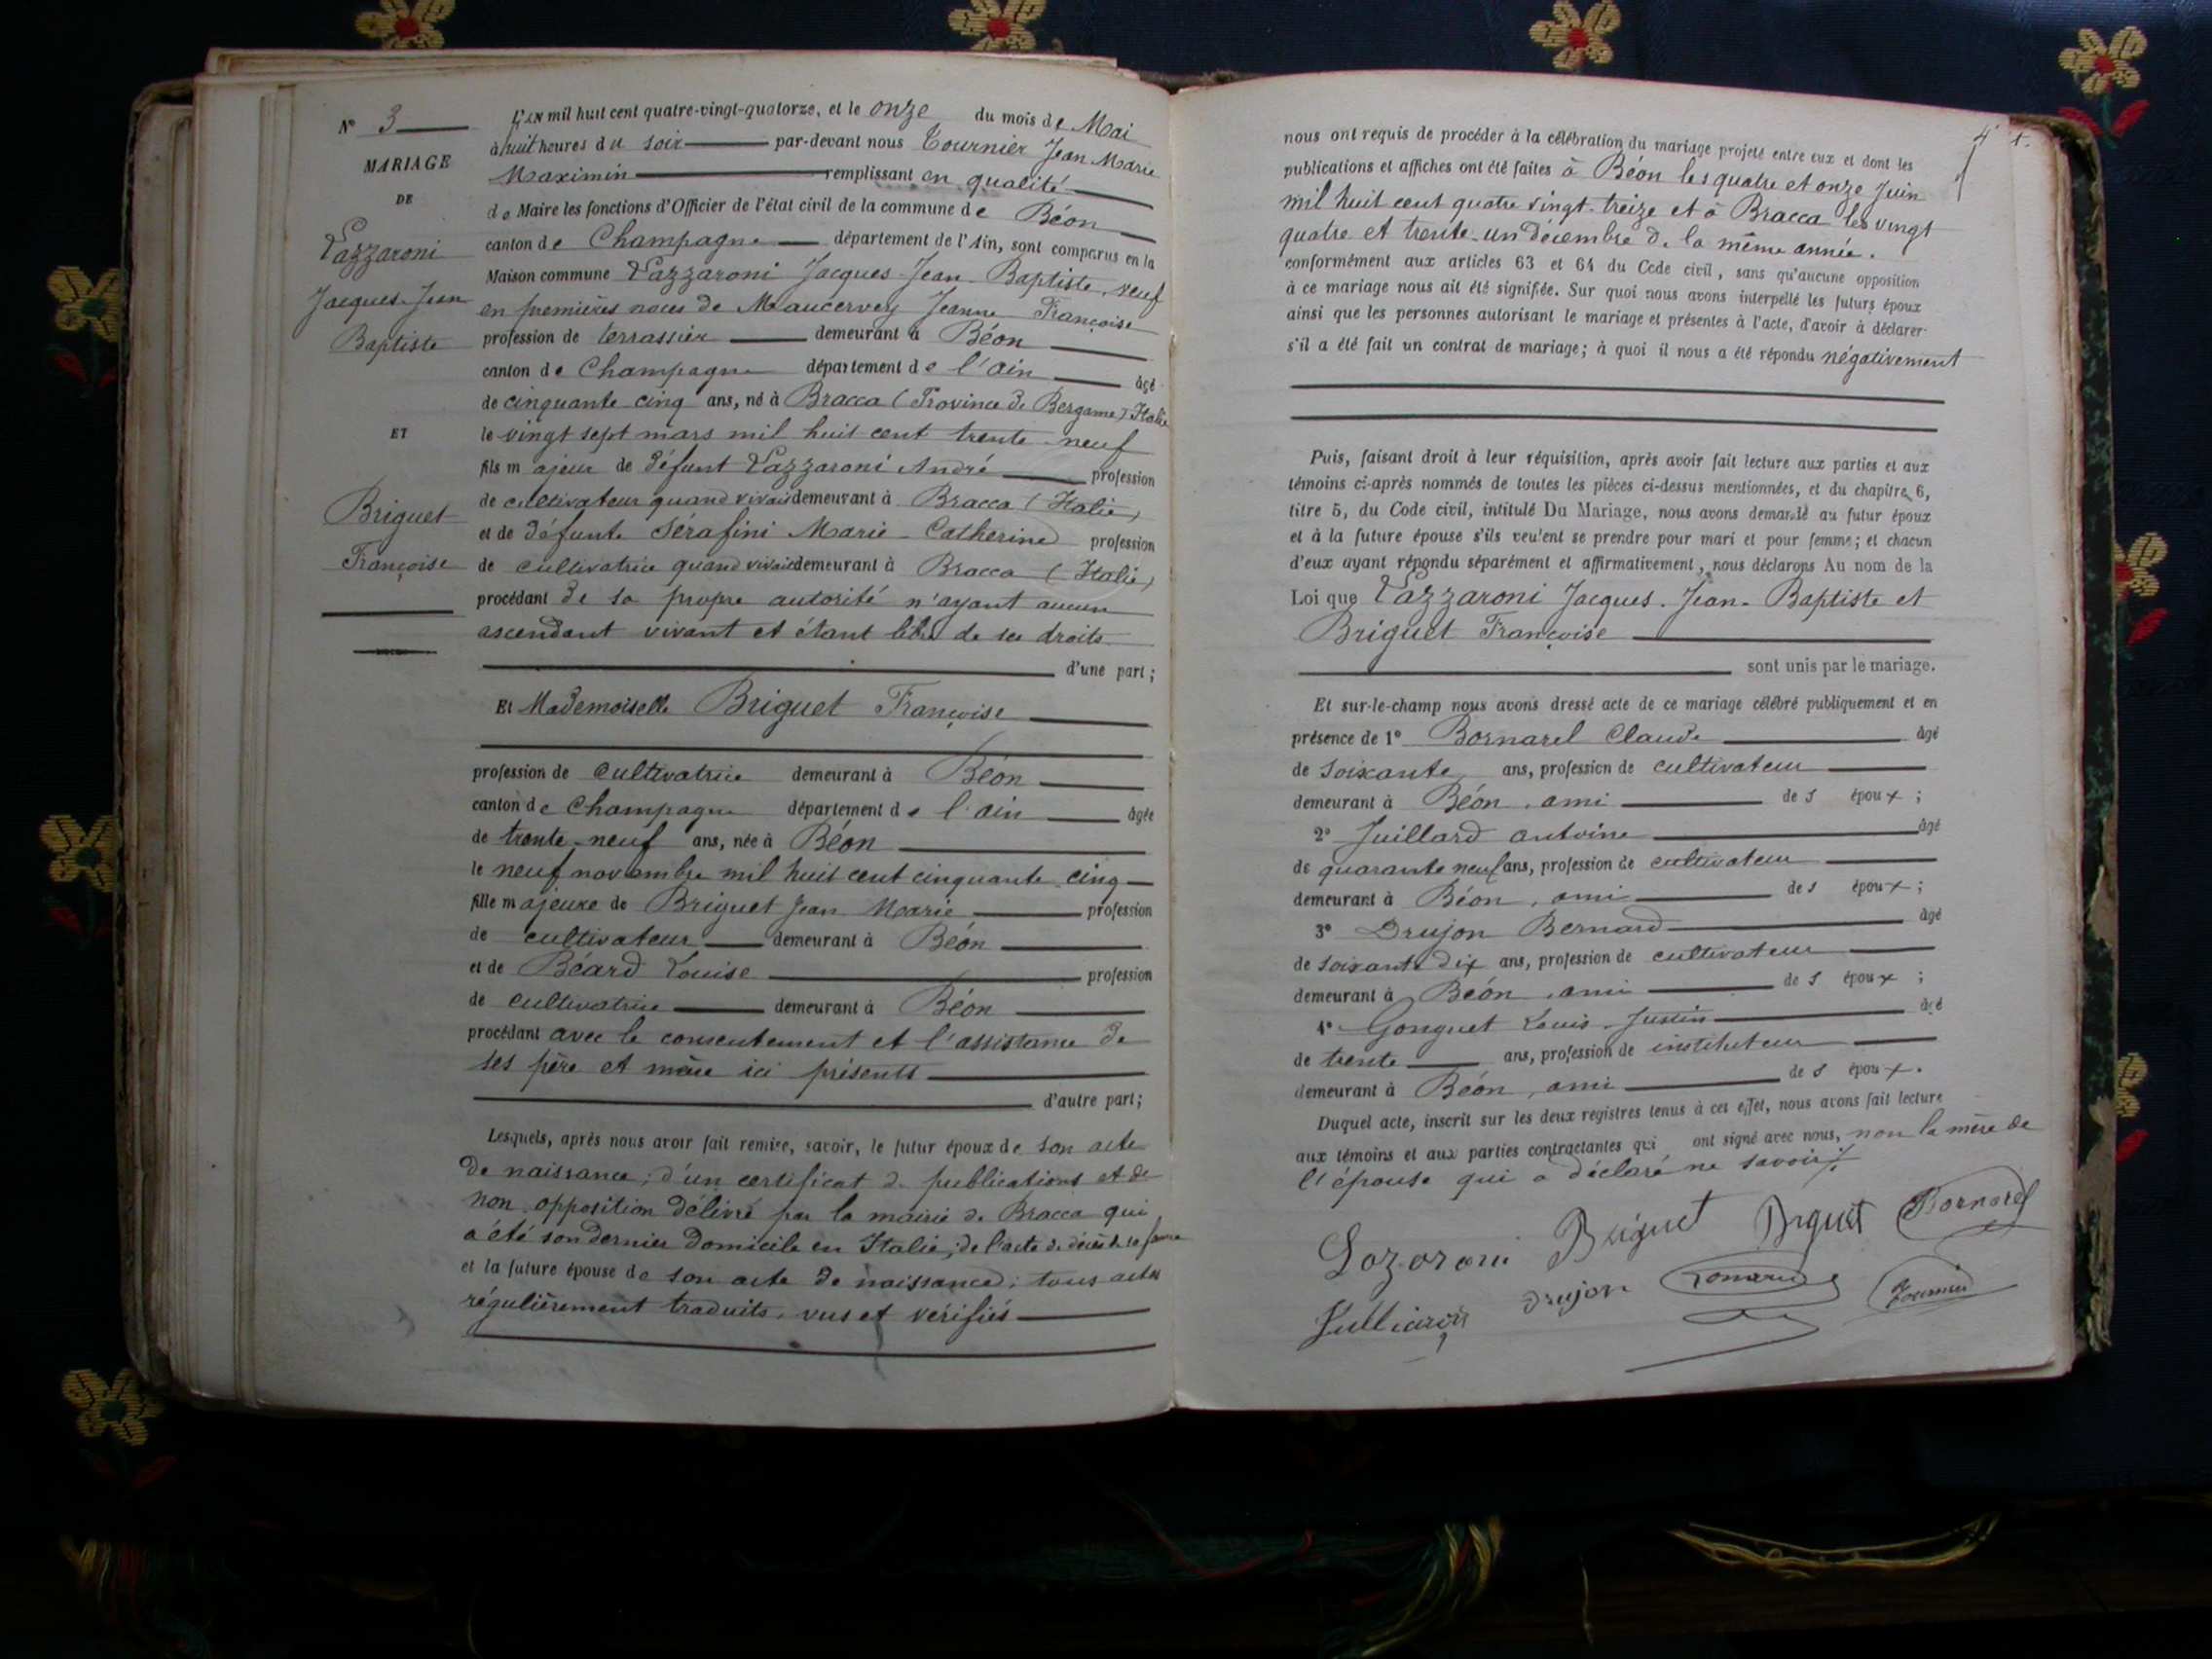 N° 3
MARIAGE
DE
Lazzaroni
Jacques-Jean
Baptiste
ET
Briguet
Françoise
L'AN mil huit cent quatre-vingt-quatorze, et le onze du mois de Mai
à huit heures du soir par-devant nous Tournier Jean Marie
Maximin remplissant en qualité
de Maire les fonctions d'Officier de l'état civil de la commune de Béon
canton de Champagne département de l'Ain, sont comparus en la
Maison commune Lazzaroni Jacques-Jean-Baptiste, veuf
en premières noces de Maucervey Jeanne Françoise
profession de terrassier demeurant à Béon
canton de Champagne département de l'ain âgé
de cinquante cinq ans, né à Bracca (Province de Bergame) Italie
le vingt sept mars mil huit cent trente-neuf
fils majeur de défunt Lazzaroni André profession
de cultivateur quand vivait demeurant à Bracca (Italie)
et de défunte Sérafini Marie-Catherine profession
de cultivatrice quand vivait demeurant à Bracca (Italie)
procédant de sa propre autorité n'ayant aucun
ascendant vivant et étant libre de ses droits
d'une part;
Et Mademoiselle Briguet Françoise
profession de cultivatrice demeurant à Béon
canton de Champagne département de l'ain âgée
de trente-neuf ans, née à Béon
le neuf novembre mil huit cent cinquante-cinq
fille majeure de Briguet Jean Marie profession
de cultivateur demeurant à Béon
et de Béard Louise profession
de cultivatrice demeurant à Béon
procédant avec le consentement et l'assistance de
ses père et mère ici présents
d'autre part;
Lesquels, après nous avoir fait remise, savoir, le futur époux de son acte
de naissance; d'un certificat de publications et de
non opposition délivré par la mairie de Bracca qui
a été son dernier domicile en Italie; de l'acte de décès de sa femme
et la future épouse de son acte de naissance; tous actes
régulièrement traduits, vus et vérifiés
nous ont requis de procéder à la célébration du mariage projeté entre eux et dont les
publications et affiches ont été faites à Béon les quatre et onze Juin
mil huit cent quatre vingt-treize et à Bracca les vingt
quatre et trente-un décembre de la même année.
conformément aux articles 63 et 64 du Code civil, sans qu'aucune opposition
à ce mariage nous ait été signifiée. Sur quoi nous avons interpellé les futurs époux
ainsi que les personnes autorisant le mariage et présentes à l'acte, d'avoir à déclarer
s'il a été fait un contrat de mariage; à quoi il nous a été répondu négativement
Puis, faisant droit à leur réquisition, après avoir fait lecture aux parties et aux
témoins ci-après nommés de toutes les pièces ci-dessus mentionnées, et du chapitre 6,
titre 5, du Code civil, intitulé Du Mariage, nous avons demandé au futur époux
et à la future épouse s'ils veulent se prendre pour mari et pour femme; et chacun
d'eux ayant répondu séparément et affirmativement, nous déclarons Au nom de la
Loi que Lazzaroni Jacques-Jean-Baptiste et
Briguet Françoise
sont unis par le mariage.
Et sur-le-champ nous avons dressé acte de ce mariage célébré publiquement et en
présence de 1° Bornarel Claude âgé
de soixante ans, profession de cultivateur
demeurant à Béon, ami des époux;
2° Juillard antoine âgé
de quarante neuf ans, profession de cultivateur
demeurant à Béon, ami des époux;
3° Drujon Bernard âgé
de soixante dix ans, profession de cultivateur
demeurant à Béon, ami des époux;
4° Gonguet Louis-Justin âgé
de trente ans, profession de instituteur
demeurant à Béon, ami des époux.
Duquel acte, inscrit sur les deux registres tenus à cet effet, nous avons fait lecture
aux témoins et aux parties contractantes qui ont signé avec nous, non la mère de
l'épouse qui a déclaré ne savoir
Lozoroni Briguet Briguet Bornarel
Drujon Tournier